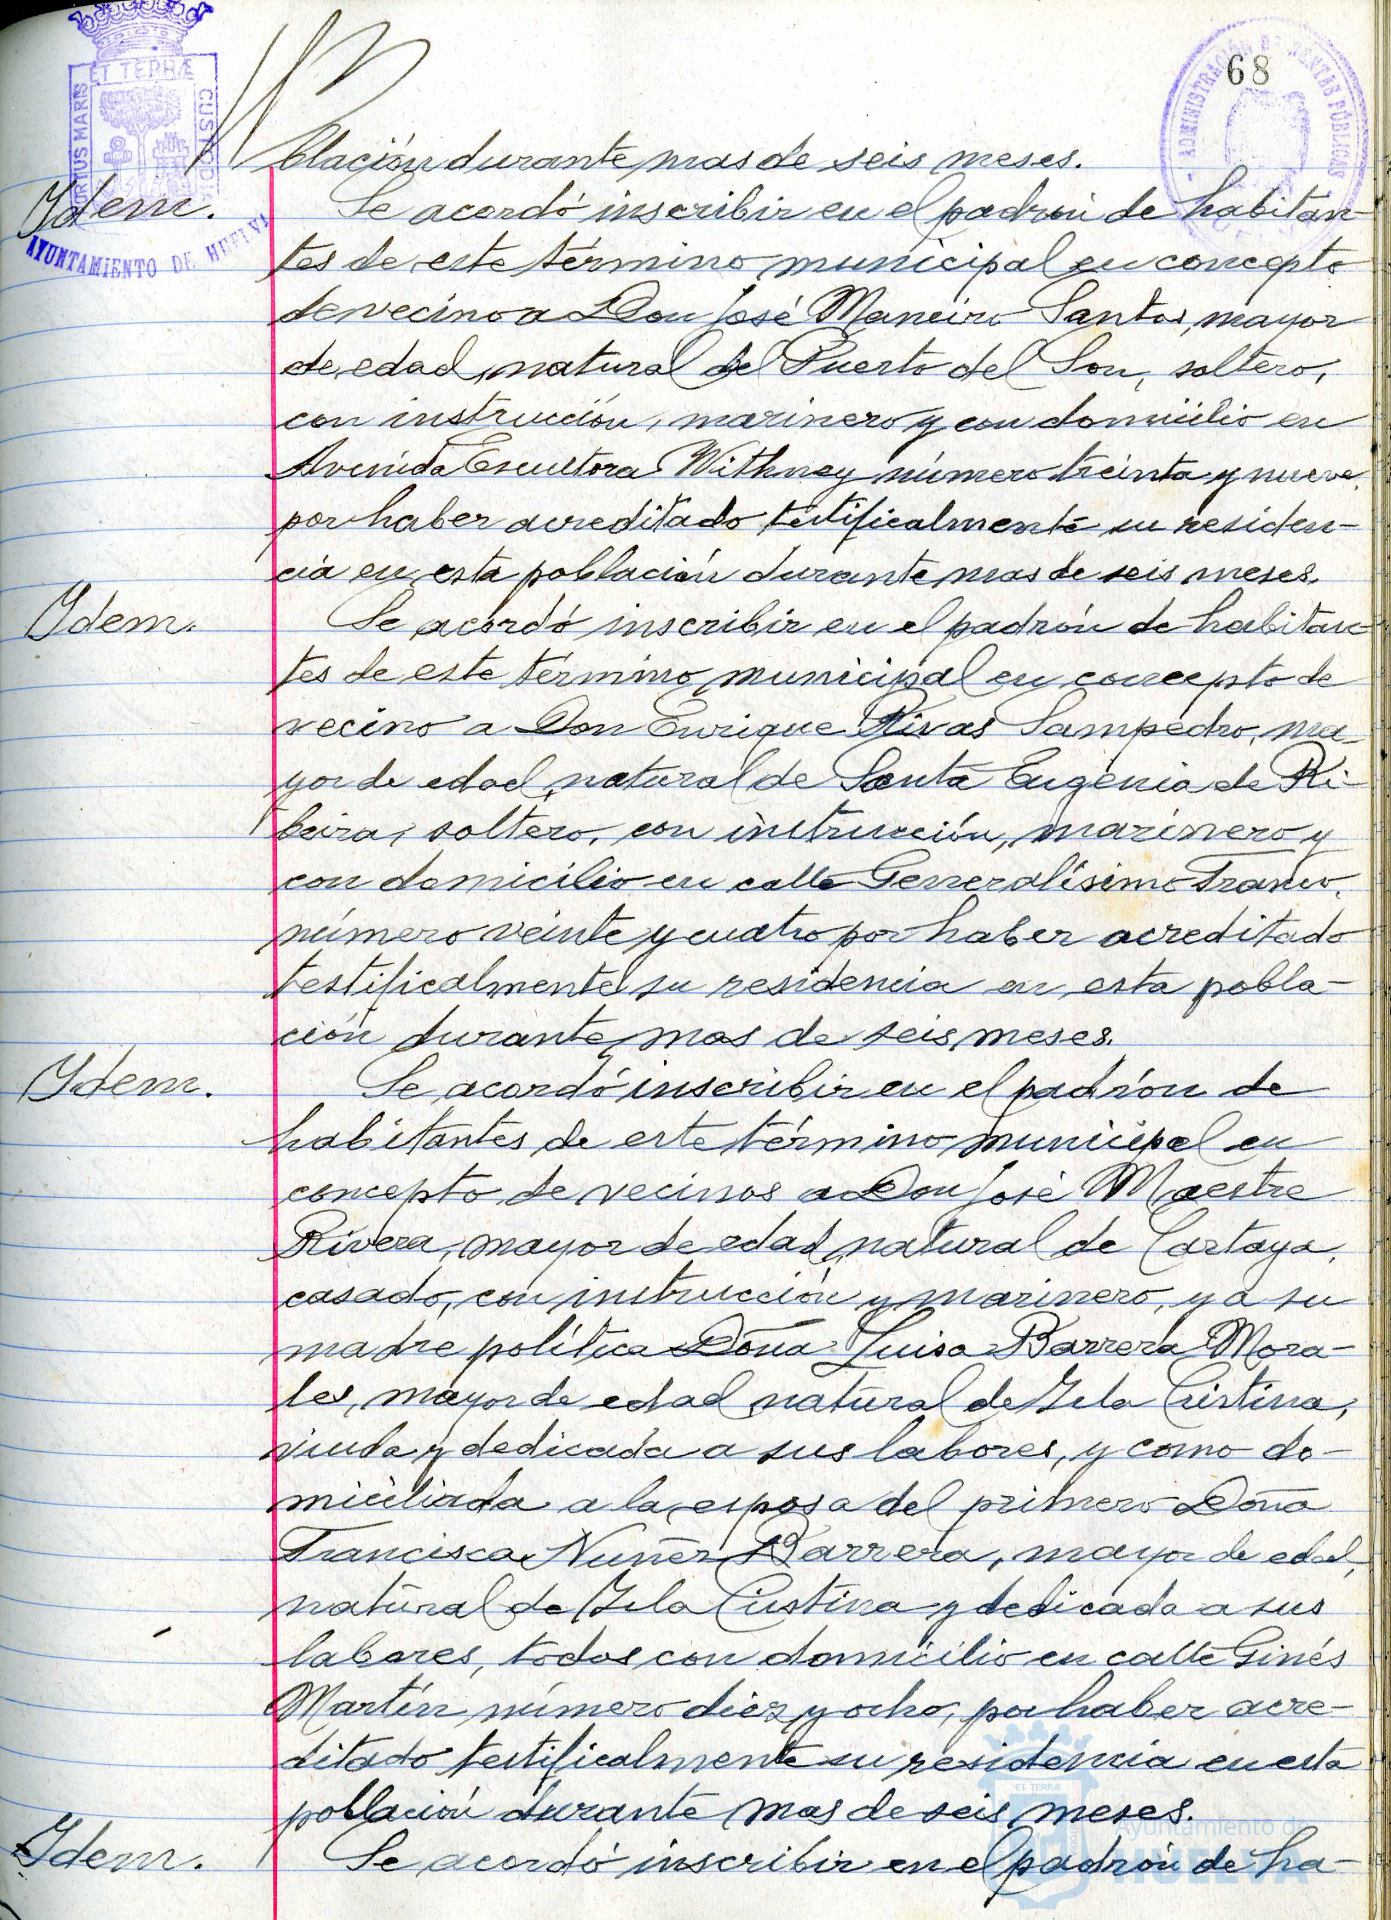 68
PORTUS MARIS
ET TERRÆ
CUSTODIA
AYUNTAMIENTO DE HUELVA
ADMINISTRACIÓN DE RENTAS PÚBLICAS
blación durante mas de seis meses.
Idem.
Se acordó inscribir en el padrón de habitan-
tes de este término municipal en concepto
de vecino a Don José Maneiro Santos, mayor
de edad, natural del Puerto del Son, soltero,
con instrucción, marinero y con domicilio en
Avenida Escultora Withney número treinta y nueve,
por haber acreditado testificalmente su residen-
cia en esta población durante mas de seis meses.
Idem.
Se acordó inscribir en el padrón de habitan-
tes de este término municipal en concepto de
vecino a Don Enrique Rivas Sampedro, ma-
yor de edad, natural de Santa Eugenia de Ri-
beira, soltero, con instrucción, marinero y
con domicilio en calle Generalísimo Franco,
número veinte y cuatro por haber acreditado
testificalmente su residencia en esta pobla-
ción durante mas de seis meses.
Idem.
Se acordó inscribir en el padrón de
habitantes de este término municipal en
concepto de vecinos a Don José Maestre
Rivera, mayor de edad, natural de Cartaya,
casado, con instrucción y marinero, y a su
madre política Doña Luisa Barrera Mora-
les, mayor de edad, natural de Isla Cristina,
viuda y dedicada a sus labores, y como do-
miciliada a la esposa del primero Doña
Francisca Nuñez Barrera, mayor de edad,
natural de Isla Cristina y dedicada a sus
labores, todos con domicilio en calle Ginés
Martín número diez y ocho, por haber acre-
ditado testificalmente su residencia en esta
población durante mas de seis meses.
Idem.
Se acordó inscribir en el padrón de ha-
Ayuntamiento de
HUELVA